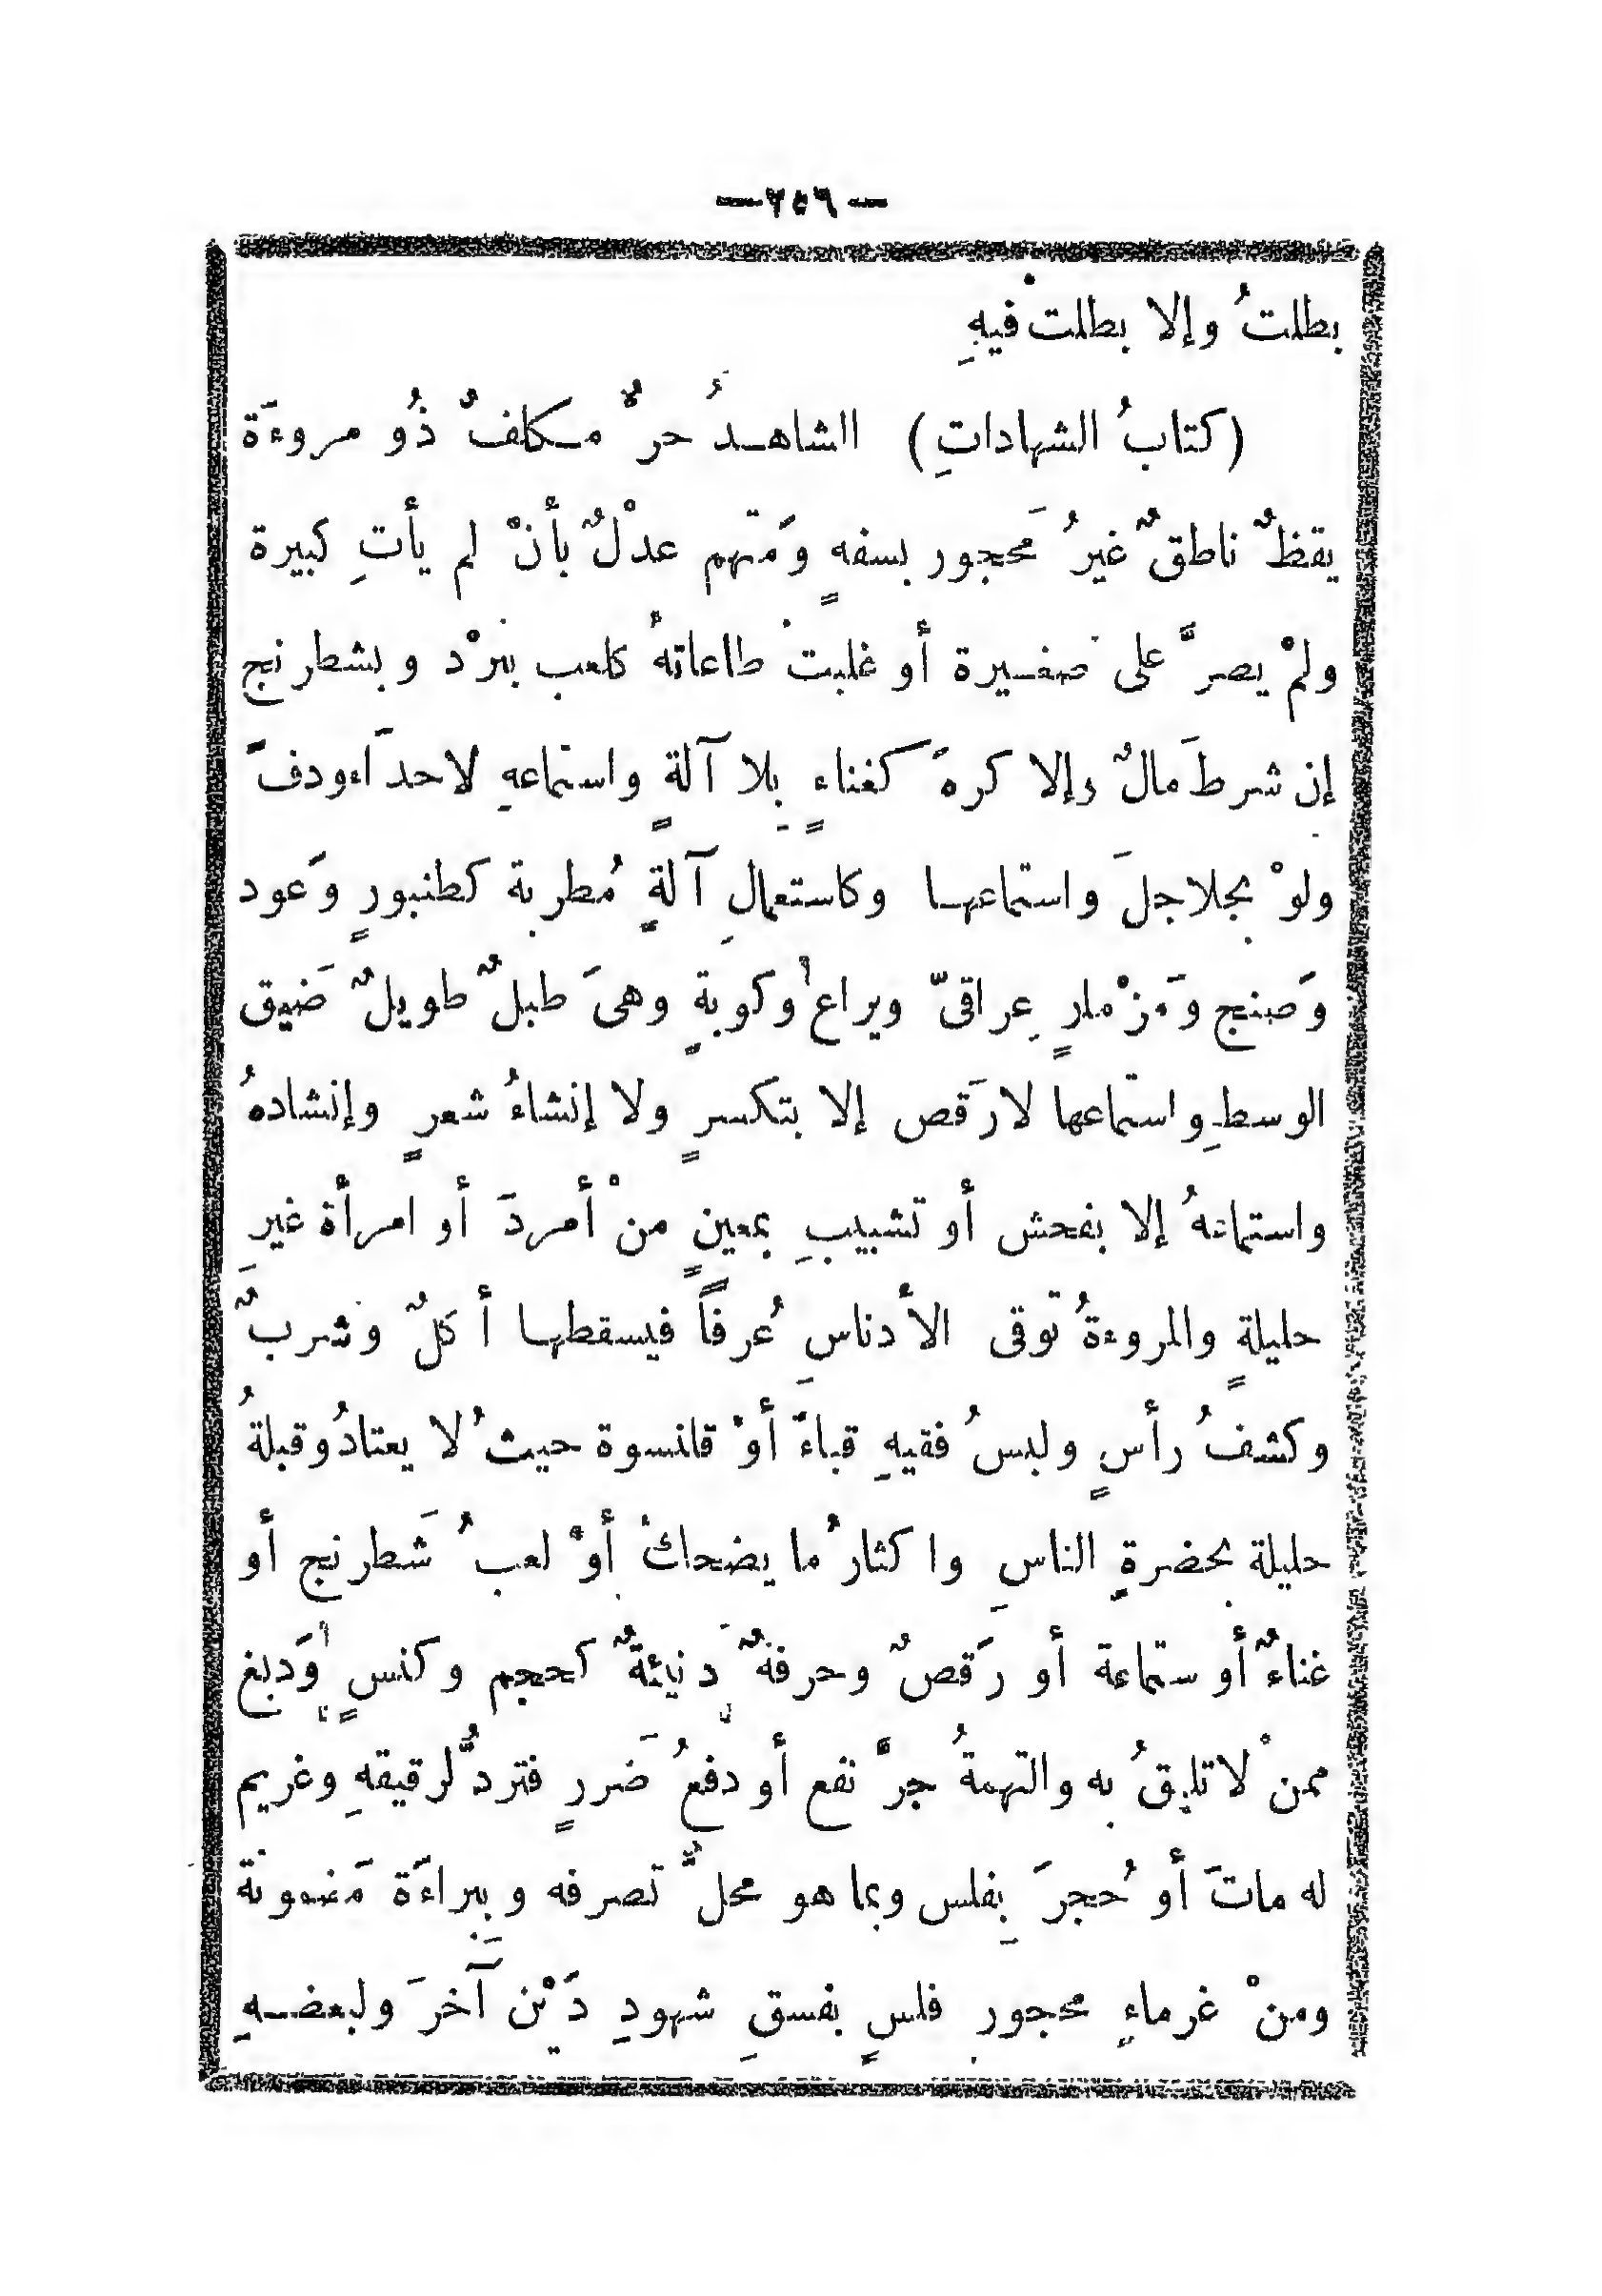 —٢٥٦—
بطلتُ وإلا بطلتْ فيهِ
(كتابُ الشهاداتِ) الشاهدُ حرٌّ مكلفٌ ذُو مروءَة
يقظٌ ناطقٌ غيرُ مَحجور بسفهٍ وَمتهم عدْلٌ بأنْ لم يأتِ كبيرة
ولمْ يصرَّ على صغيرة أو غلبتْ طاعاتهُ كلعب بنرْد وبشطرنج
إن شرطَ مالٌ وإلا كرهَ كغناءٍ بِلا آلةٍ واستماعهِ لاحدَاءودفَّ
ولوْ بجلاجلَ واستماعها وكاستعمالِ آلةٍ مُطربة كطنبورٍ وَعود
وَصنج وَمزْمارٍ عِراقىّ ويراع أوكوبةٍ وهىَ طبلٌ طويلٌ ضَيق
الوسطِ واستماعها لارَقص إلا بتكسرٍ ولا إنشاءُ شعرٍ وإنشادهُ
واستماعهُ إلا بفحش أو تشبيبٍ بمعينٍ منْ أمردَ أو امرأة غيرِ
حليلةٍ والمروءةُ توَقى الأدناسِ عُرفاً فيسقطها أكلٌ وشربٌ
وكشفُ رأسٍ ولبسُ فقيهِ قباءً أوْ قلنسوة حيثُ لا يعتادُ وقبلةُ
حليلة بحضرةِ الناسِ واكثارُ ما يضحكُ أوْ لعبُ شَطرنج أو
غناءٌ أو ستماعة أو رَقصٌ وحرفةٌ دَنيئةٌ كحجم وكنسٍ وَدبغ
ممنْ لاتليقُ به والتهمةُ جرَّ نفع أو دفعُ ضَررٍ فتردُّ لرقيقهِ وغريم
له ماتَ أو حُجرَ بِفلس وبما هو محلٌّ تصرفه وبِبراءَة مَضمونه
ومنْ غرماءِ محجورِ فلسٍ بفسقِ شهودِ دَيْن آخرَ ولبعضهِ